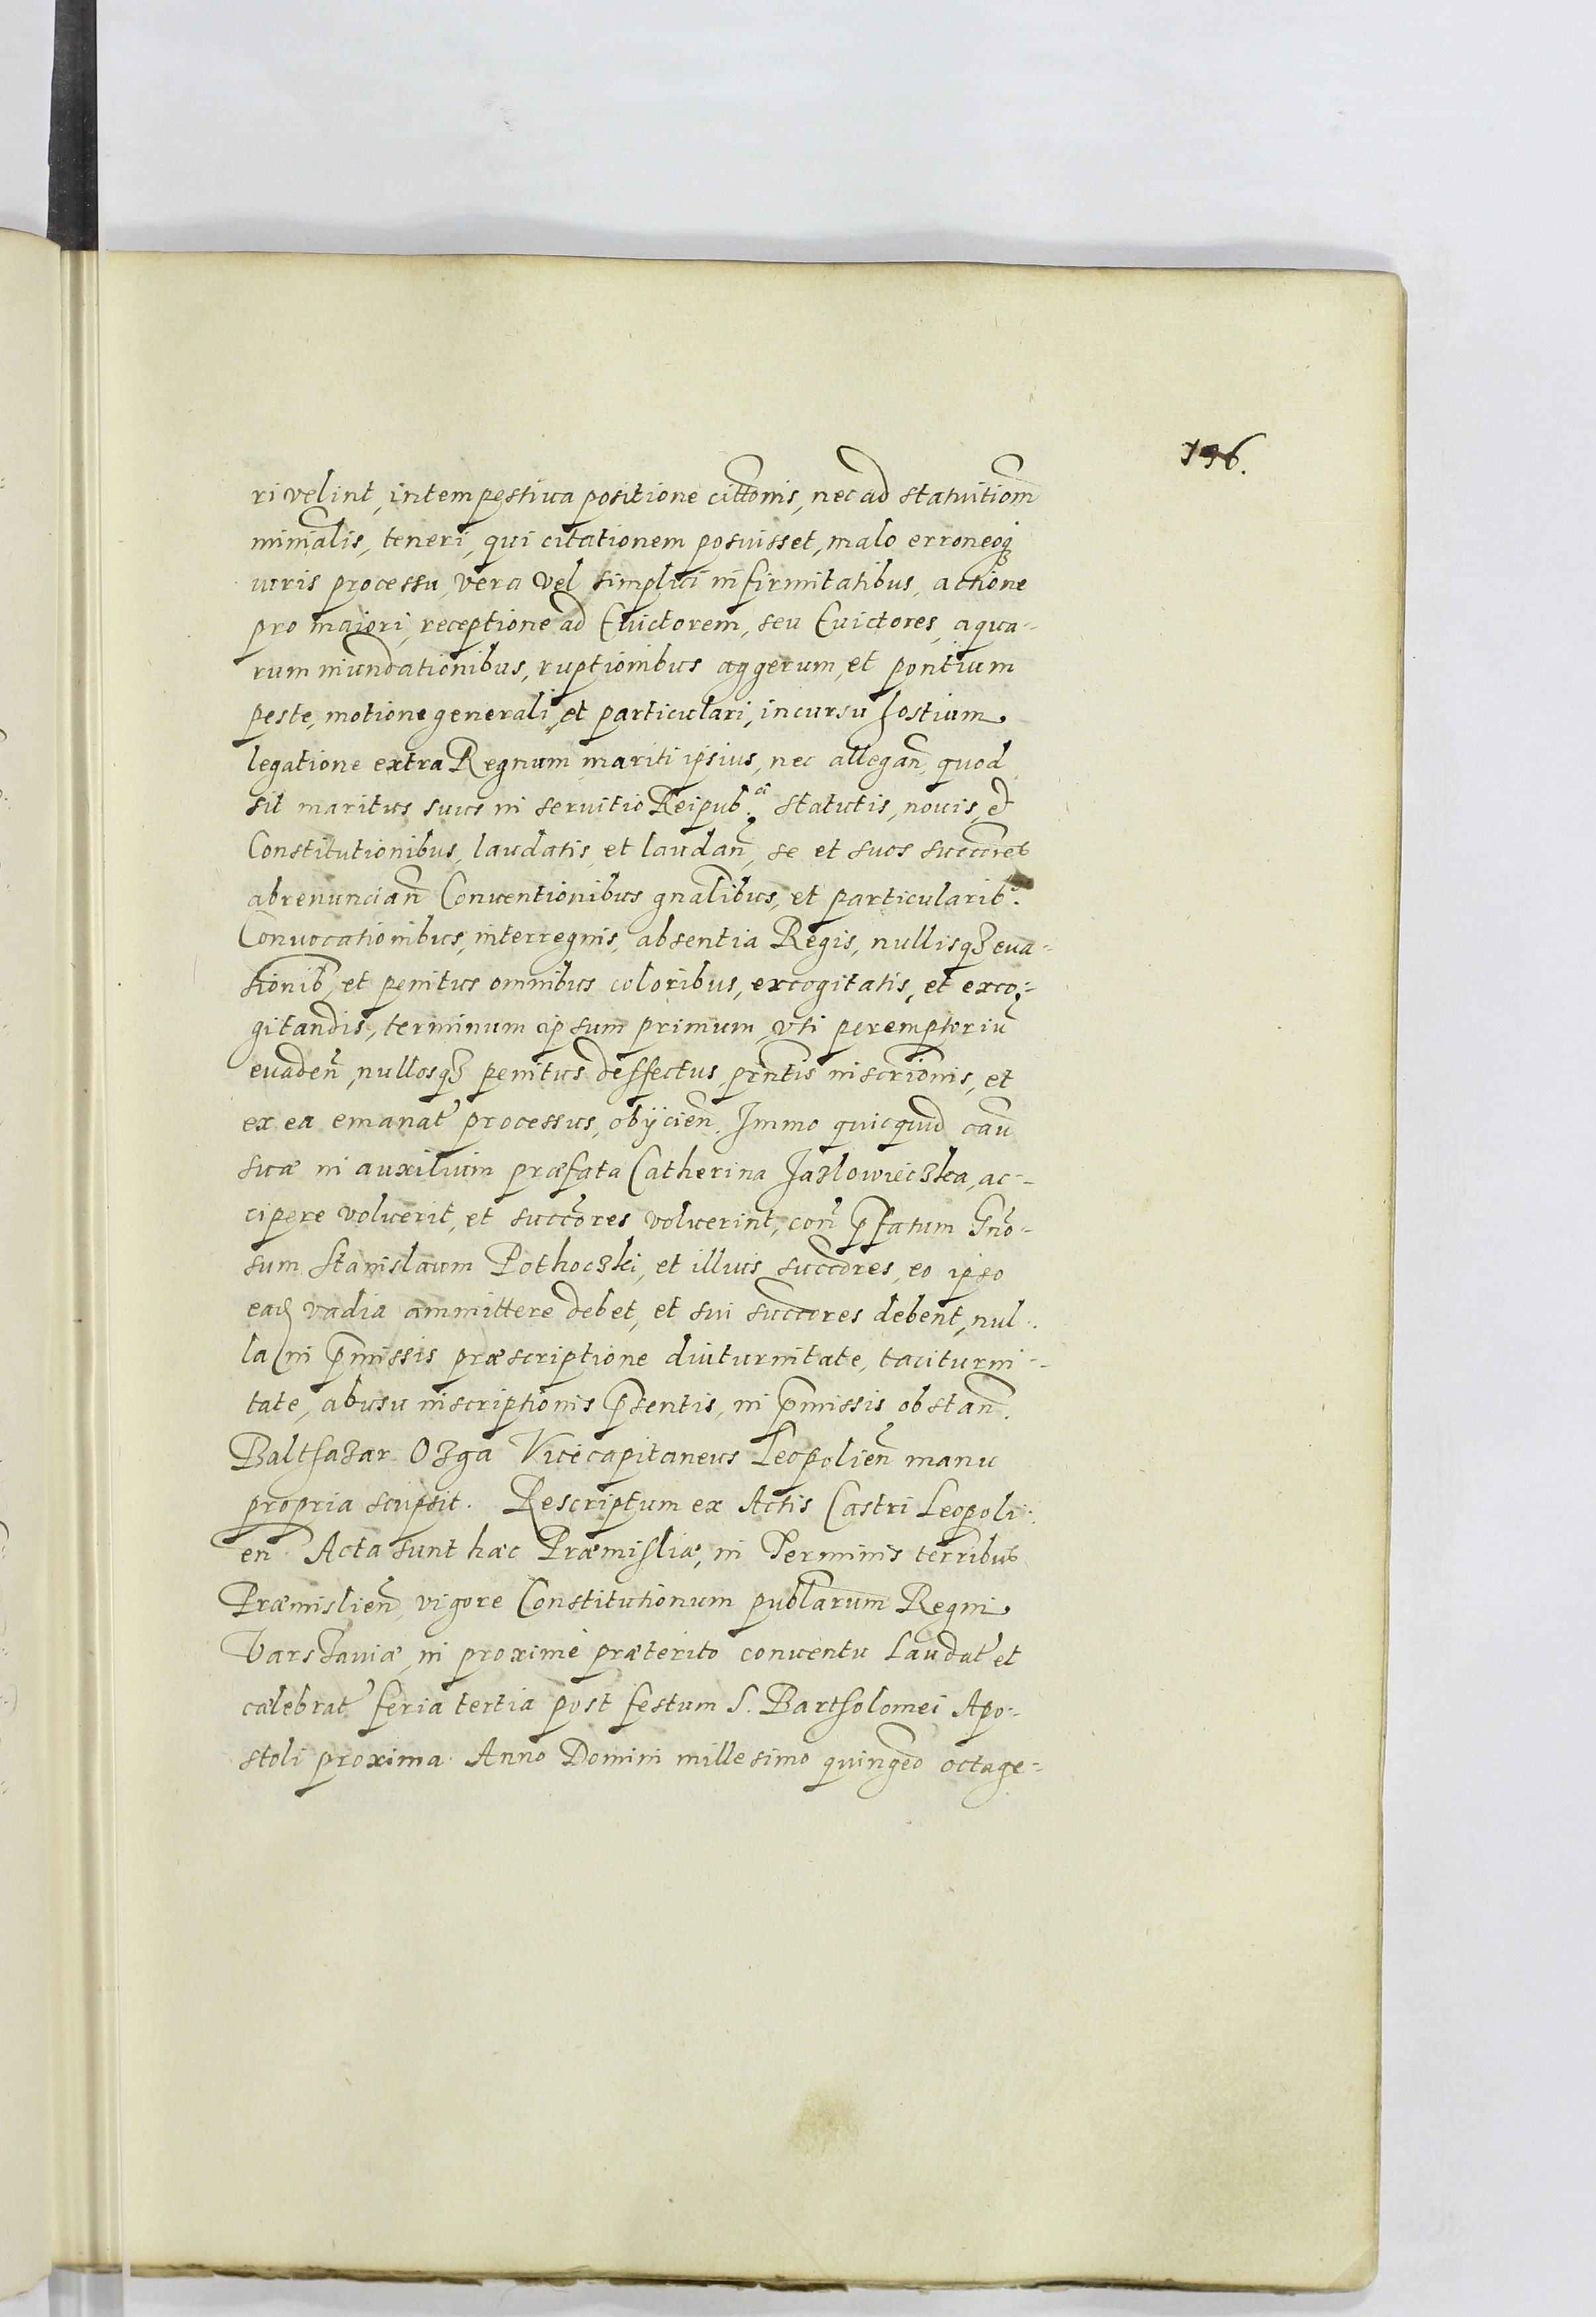 196.
ri velint, intempestiua positione cittonis, nec ad statuitiom
minialis, teneri, qui citationem posuisset, malo erroneoq
iuris processu, vera vel simplici infirmitatibus, actione
pro maiori, receptione ad Euictorem, seu Euictores, aqua-
rum inundationibus, ruptionibus aggerum, et pontium
peste, motione generali, et particulari, incursu hostium
legatione extra Regnum mariti ipsius, nec allegan̄, quod
sit maritus suus in seruitio Reipub.ᶜᵃ statutis, nouis, et
Constitutionibus, laudatis, et laudan̄, se et suos succōres
abrenuncian̄ Conuentionibus gnālibus, et particularib:
Conuocationibus, interregnis, absentia Regis, nullisqȝ eua-
sionib, et penitus omnibus coloribus, excogitatis, et exco-
gitandis, terminum ipsum primum, vti peremptoriū
euaden̄, nullosqȝ penitus deffectus, prn̄tis inscrīonis, et
ex ea emanat̃ processus, obijcien̄. Immo quicquid cau
suæ in auxilium præfata Catherina Jazlowieczka, ac-
cipere voluerit, et succōres voluerint, con̄ p̄fatum Gn̄o-
sum Stanislaum Pothoczki, et illius succōres, eo ipso
eadͅ vadia ammittere debet, et sui succōres debent, nul-
la in p̄missis præscriptione diuturnitate, taciturni-
tate, abusu inscriptionis p̄sentis, in p̄missis obstan̄.
Balthazar Ozga Vicecapitaneus Leopolien̄ manu
propria scripsit. Rescriptum ex Actis Castri Leopoli-
en̄. Acta sunt hæc Præmisliæ, in Terminis terribus
Præmislien̄, vigore Constitutionum publārum Regni
Varsȝauiæ, in proximè præterito conuentu Laudat̃ et
cælebrat̃ feria tertia post festum S. Bartholomei Apo-
stoli proxima. Anno Domini millesimo quingēo octage-